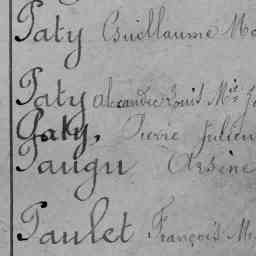 Paty Guillaume
Paty Alexandre Louis Mis
Paty, Pierre Julien
Paugu Arsène
Paulet François M